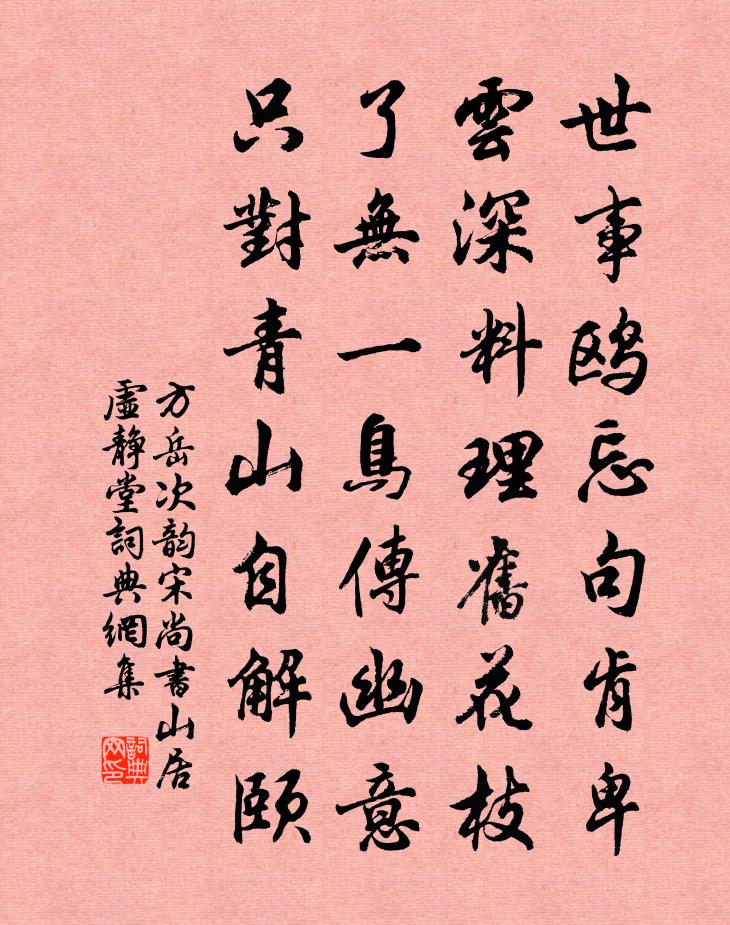 世事鸥忘句肯卑
雲深料理舊花枝
了無一鳥傳幽意
只對青山自解頤
方岳次韵宋尚書山居
虛静堂詞典網集
詞典网印